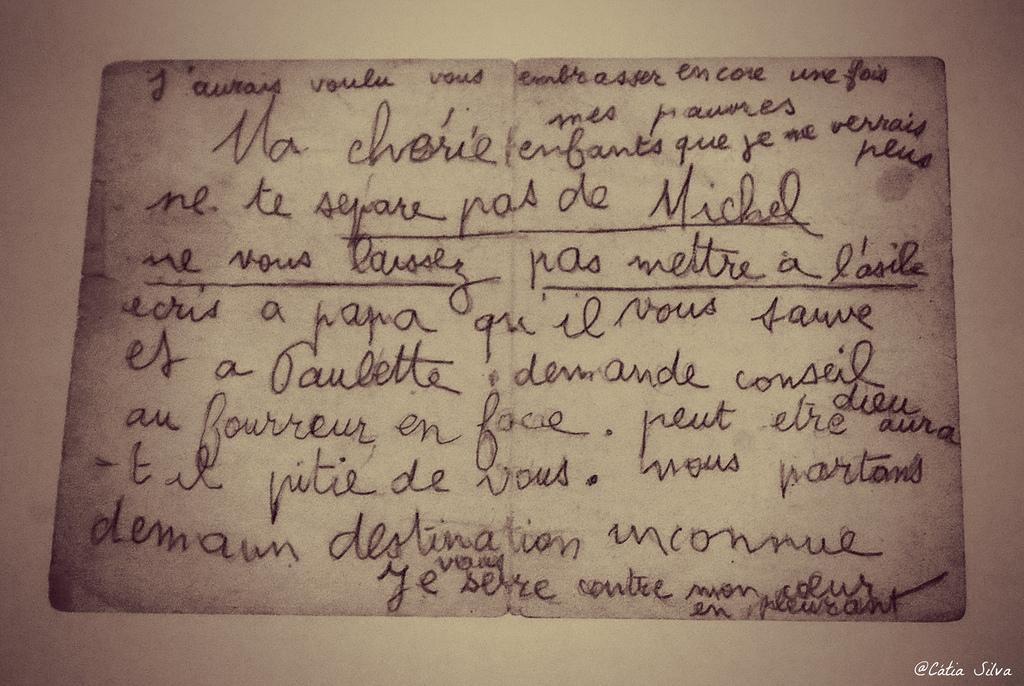 J'aurais voulu vous embrasser encore une fois
mes pauvres
enfants que je ne verrais
peus
Ma chérie
ne te separe pas de Michel
ne vous laissez pas mettre a l'asile
ecris a papa qu'il vous sauve
et a Paulette. demande conseil
au fourreur en face. peut etre dieu aura
-t il pitie de vous. nous partons
demain destination inconnue
Je vous serre contre mon cœur
en pleurant
@Cátia Silva